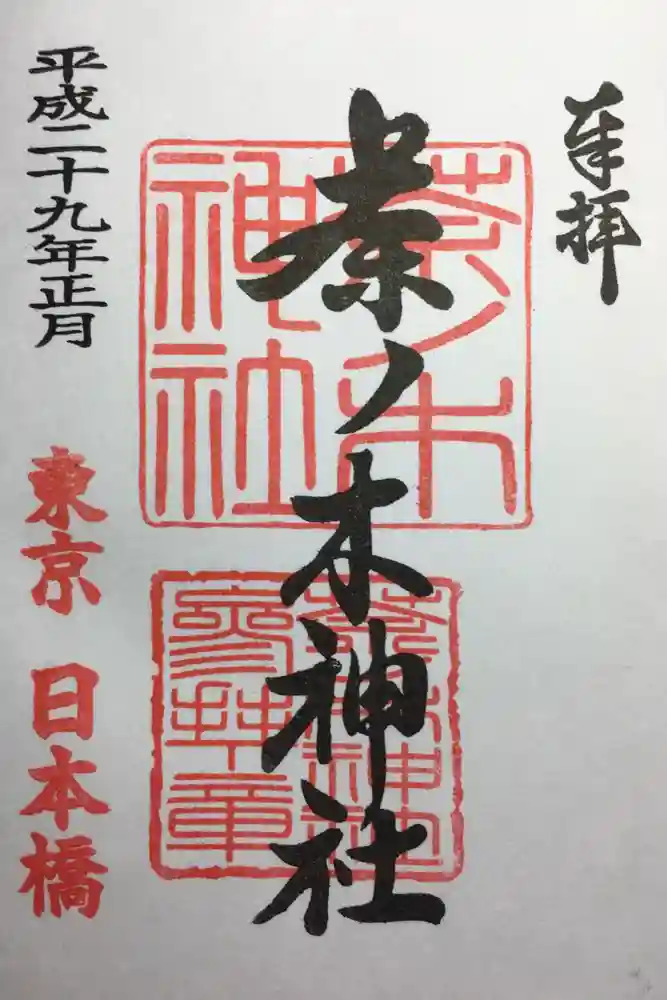 奉拝
茶ノ木神社
平成二十九年正月
東京 日本橋
茶ノ木
神社
茶ノ木神社
參拝章